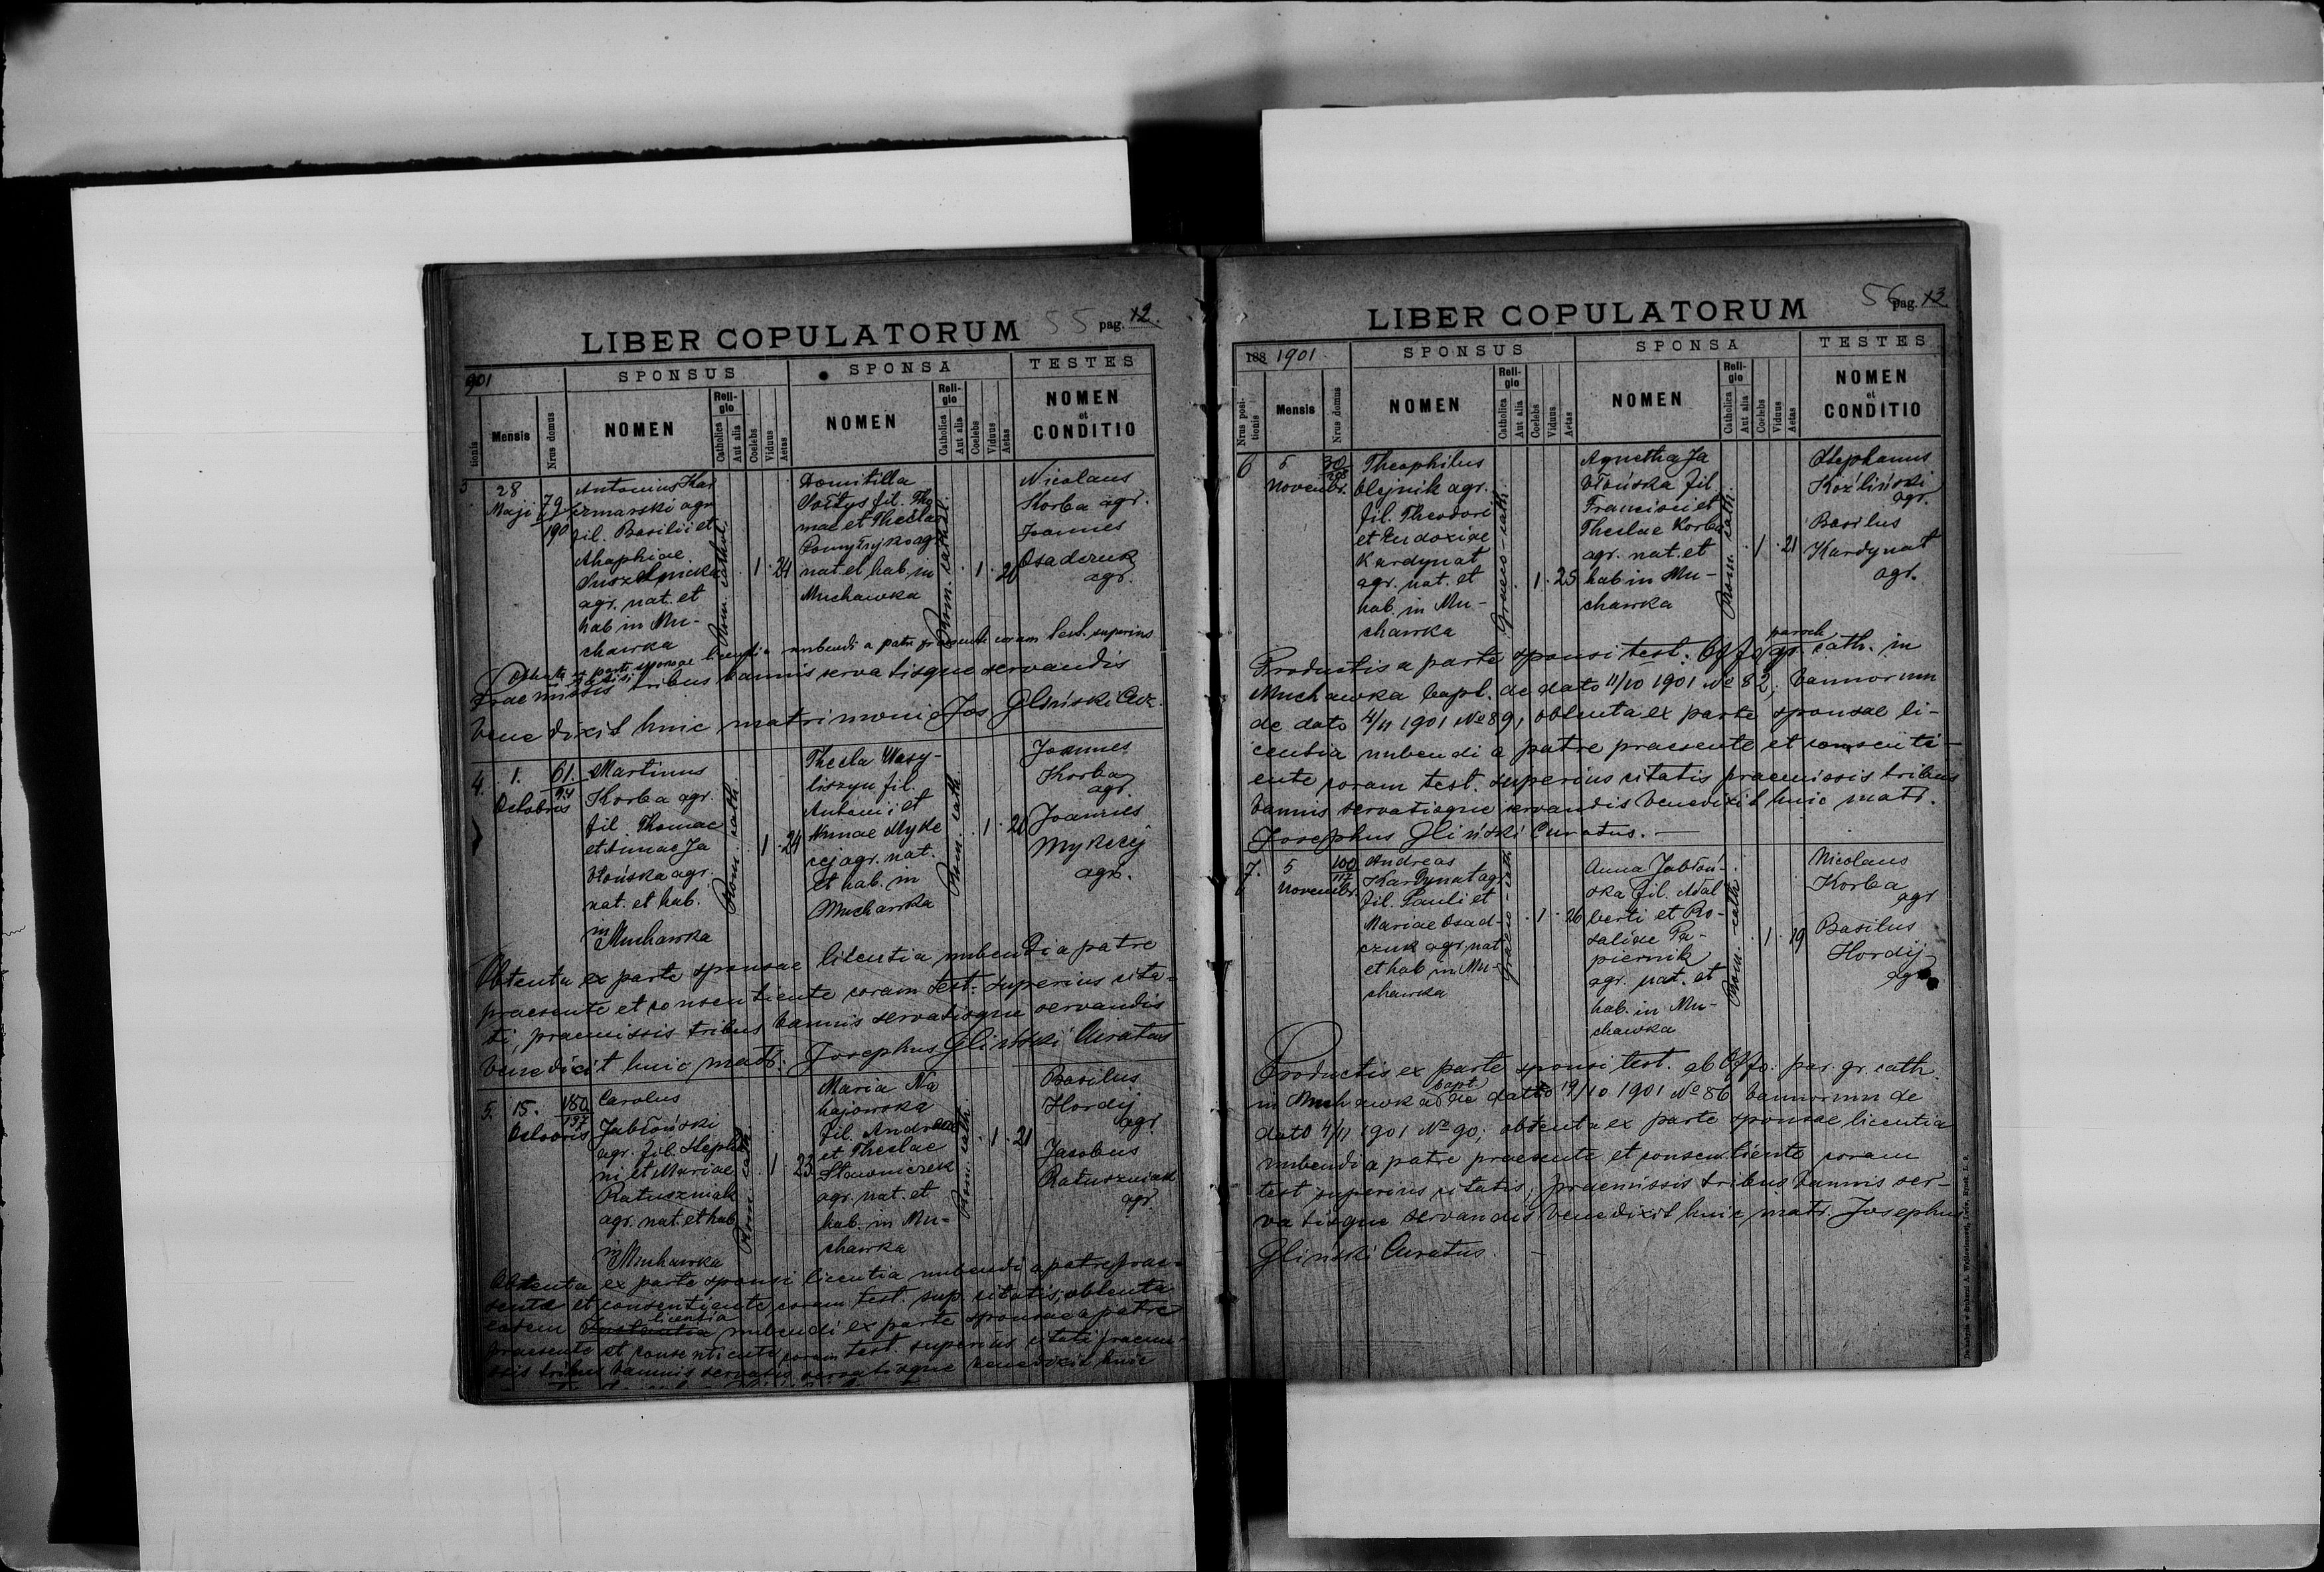 LIBER COPULATORUM
55 pag. 12.
901
SPONSUS
SPONSA
TESTES
tionis
Mensis
Nrus domus
NOMEN
Religio
Catholica
Aut alia
Coelebs
Viduus
Aetas
NOMEN
Religio
Catholica
Aut alia
Coelebs
Viduus
Aetas
NOMEN
et
CONDITIO
3
28
Maji
79
190
Antonius Kar
czmarski agr.
fil. Basilii et
Ahaphiae
agr. nat. et
hab. in Mu-
chawka
Rom. cathol.
1
24
Domitilla
Sołtys fil. Tho
mae et Theclae
agr.
nat. et hab. in
Muchawka
Rom. cathol.
1
Nicolaus
Korba agr.
Joannes
Osadczuk
agr.
Obtenta ex parte sponsae licentia nubendi a patre praesente coram test. superius
Praemissis tribus bannis servatisque servandis
benedixit huic matrimonio Jos Gliński Cur.
4.
1.
Octobris
61.
94
Martinus
Korba agr.
fil. Thomae
et Annae Ja
błońska agr.
nat. et hab.
in
Muchawka
Rom. cath.
1
24
Thecla Wasy-
liszyn fil.
Antonii et
Annae Myke
cej agr. nat.
et hab. in
Muchawka
Rom. cath.
1
Joannes
Korba
agr.
Joannes
Mykicej
agr.
Obtenta ex parte sponsae licentia nubendi a patre
praesente et consentiente coram test. superius cita-
ti, praemissis tribus bannis servatisque servandis
benedixit huic matr. Josephus Gliński Curatus
5.
15.
Octobris
180
197
Carolus
Jabłoński
agr. fil. Stepha
ni et Mariae
Ratuszniak
agr. nat. et hab
in Muchawka
Rom. cath.
1
23
Maria Na
hajowska
fil. Andreae
et Theclae
Sławniczek
agr. nat. et
hab. in Mu-
chawka
Rom. cath.
1
21
Basilius
Hordij
agr.
Jacobus
Ratuszniak
agr.
Obtenta ex parte sponsi licentia nubendi a patre prae-
sente et consentiente coram test. sup citatis, obtenta
eadem licentia nubendi ex parte sponsae a patre
praesente et consentiente coram test. superius citati praemi-
ssis tribus bannis servatis servatisque benedixit huic
LIBER COPULATORUM
56 pag. 13
188 1901.
SPONSUS
SPONSA
TESTES
Nrus positionis
Mensis
Nrus domus
NOMEN
Religio
Catholica
Aut alia
Coelebs
Viduus
Aetas
NOMEN
Religio
Catholica
Aut alia
Coelebs
Viduus
Aetas
NOMEN
et
CONDITIO
6
5
Novembr.
30
Theophilus
Olejnik agr.
fil. Theodori
et Eudoxiae
Kardynat
agr. nat. et
hab. in Mu-
chawka
Graeco-cath.
1
25
Agnetha Ja
błońska fil
Francisci et
Theclae Korba
agr. nat. et
hab in Mu-
chawka
Rom. cath.
1
21
Stephanus
Koźliński
agr.
Basilus
Kardynat
agr.
Productis a parte sponsi test. Offo paroch gr. cath. in
Muchawka bapt. de dato 11/10 1901 No 82, bannorum
de dato 4/11 1901 No 89, obtenta ex parte sponsae li-
centia nubendi a patre praesente et consenti-
ente coram test. superius citatis praemissis tribus
bannis servatisque servandis benedixit huic matr.
Josephus Gliński Curatus. —
7.
5
Novembr.
100
117
Andreas
Kardynat agr
fil. Pauli et
Mariae Osad-
czuk agr. nat
et hab. in Mu-
chawka
Graeco-cath
1
26
Anna Jabłoń-
ska fil. Adal
berti et Ro-
saliae Pa-
piernik
agr. nat. et
hab. in Mu-
chawka
Rom. cath.
1
19
Nicolaus
Korba
agr
Basilus
Hordij
agr
Productis ex parte sponsi test. ab Offo. par. gr. cath
in Muchawka bapt. de dato 19/10 1901 No 86 bannorum de
dato 4/11 1901 No 90; obtenta ex parte sponsae licentia
nubendi a patre praesente et consentiente coram
test superius citatis, praemissis tribus bannis ser-
vatisque servandis benedixit huic matr. Josephus
Gliński Curatus. —